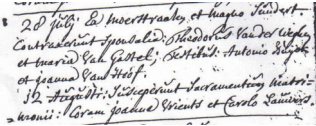 28 July Ex et magno Zundert
Contraxerunt Sponsalia: Theodorus Vander
et maria Van Gastel; Testibus: Antonio
et Joanna Van Hoof;
12 Augusti: Susceperunt Sacramentum matri-
-monii: Coram Joanna Vrients et Carolo Lauwers.